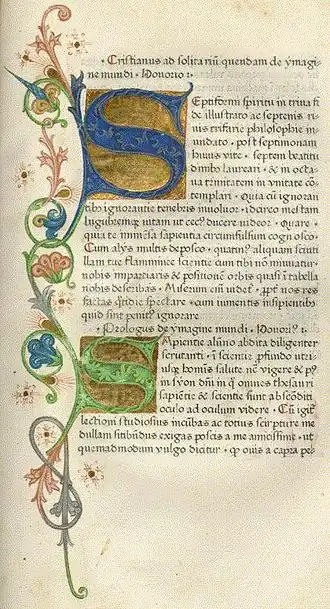 · Cristianus ad solitariũ quendam de ymagi
ne mundi · Honorio :·
SEptiformi spiritu in trina fi
de illustrato ac septemis
riuis trifarie philosophie in
undato · post septimonam
huius vite · septem beatitu
dinibꝰ laureari · & in octa
ua trinitatem in vnitate cõ
templari · Quia cũ ignoran
tibꝰ ignorantie tenebris inuoluor · idcirco mestam
lugubremqꝫ uitam ut cecꝰ ducere uideor · Quare ·
quia te immẽsa sapientia circumfulsum cognosco ·
Cum alys multis deposco · quatinꝰ aliquam scinti
llam tue flammine scientie cum tibi nõ minuatur ·
nobis impartiaris & positionẽ orbis quasi ĩ tabella
nobis describas · Miserum enĩ uidet᷑ · ꝓpt᷑ nos res
factas qͦtidie spectare · cum iumentis insipientibꝰ
quid sint penitꝰ ignorare
· Prologus de ymagine mundi · Honorii :·
SApientie alũno abdita diligenter
scrutanti · ĩ scientie ꝓfundo utri
usqꝫ homĩs salute nẽ vigere & pꝰ
in syon dñm in qͦ omnes thesauri
sapiẽtie & scientie sunt abscõditi
oculo ad oculum videre · Cũ igit᷑
lectioni studiosius incũbas ac totius scripture me
dullam sitibñdus exigas poscis a me amicissime · ut
quemadmodum vulgo dicitur · qͦ ouis a capra pe